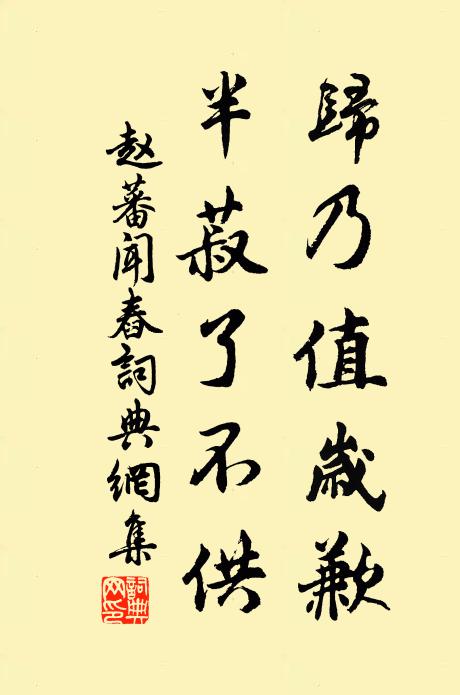 歸乃值歲歉
半菽了不供
赵蕃闻舂詞典網集
詞典网印